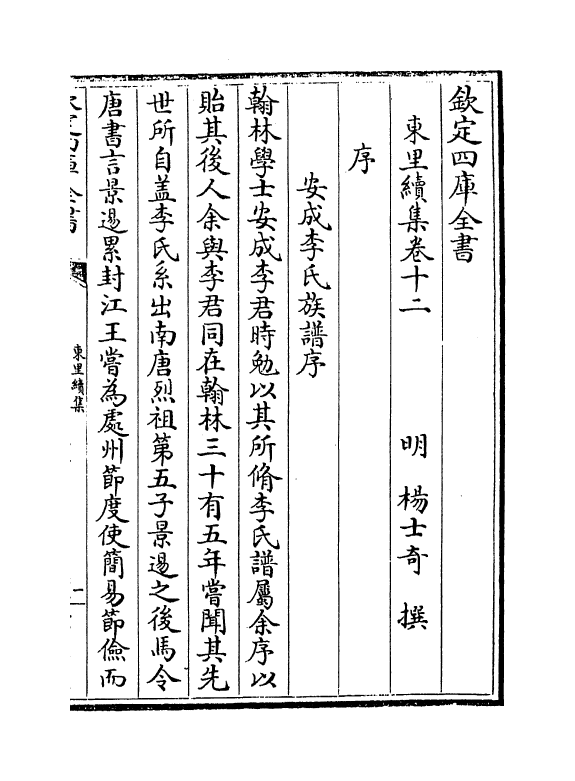 欽定四庫全書
東里續集卷十二　明　楊士奇　撰
序
安成李氏族譜序
翰林學士安成李君時勉以其所脩李氏譜屬余序以
貽其後人余與李君同在翰林三十有五年嘗聞其先
世所自盖李氏系出南唐烈祖第五子景逷之後馬令
唐書言景逷累封江王嘗為處州節度使簡易節儉而
東里續集